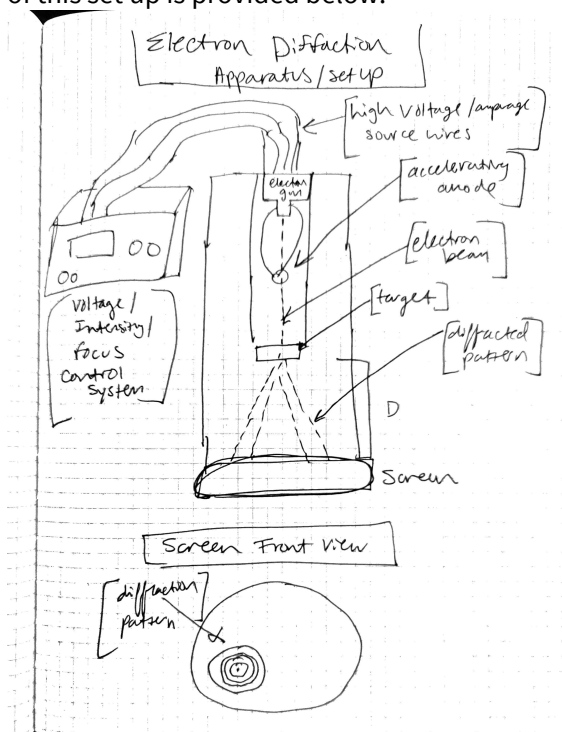 of this set up is provided below.
Electron Diffraction
Apparatus/setup
high voltage/amparage
source wires
electron
gun
accelerating
anode
electron
beam
target
diffracted
pattern
Voltage/
Intensity/
focus
Control
System
D
Screen
Screen Front View
diffraction
pattern